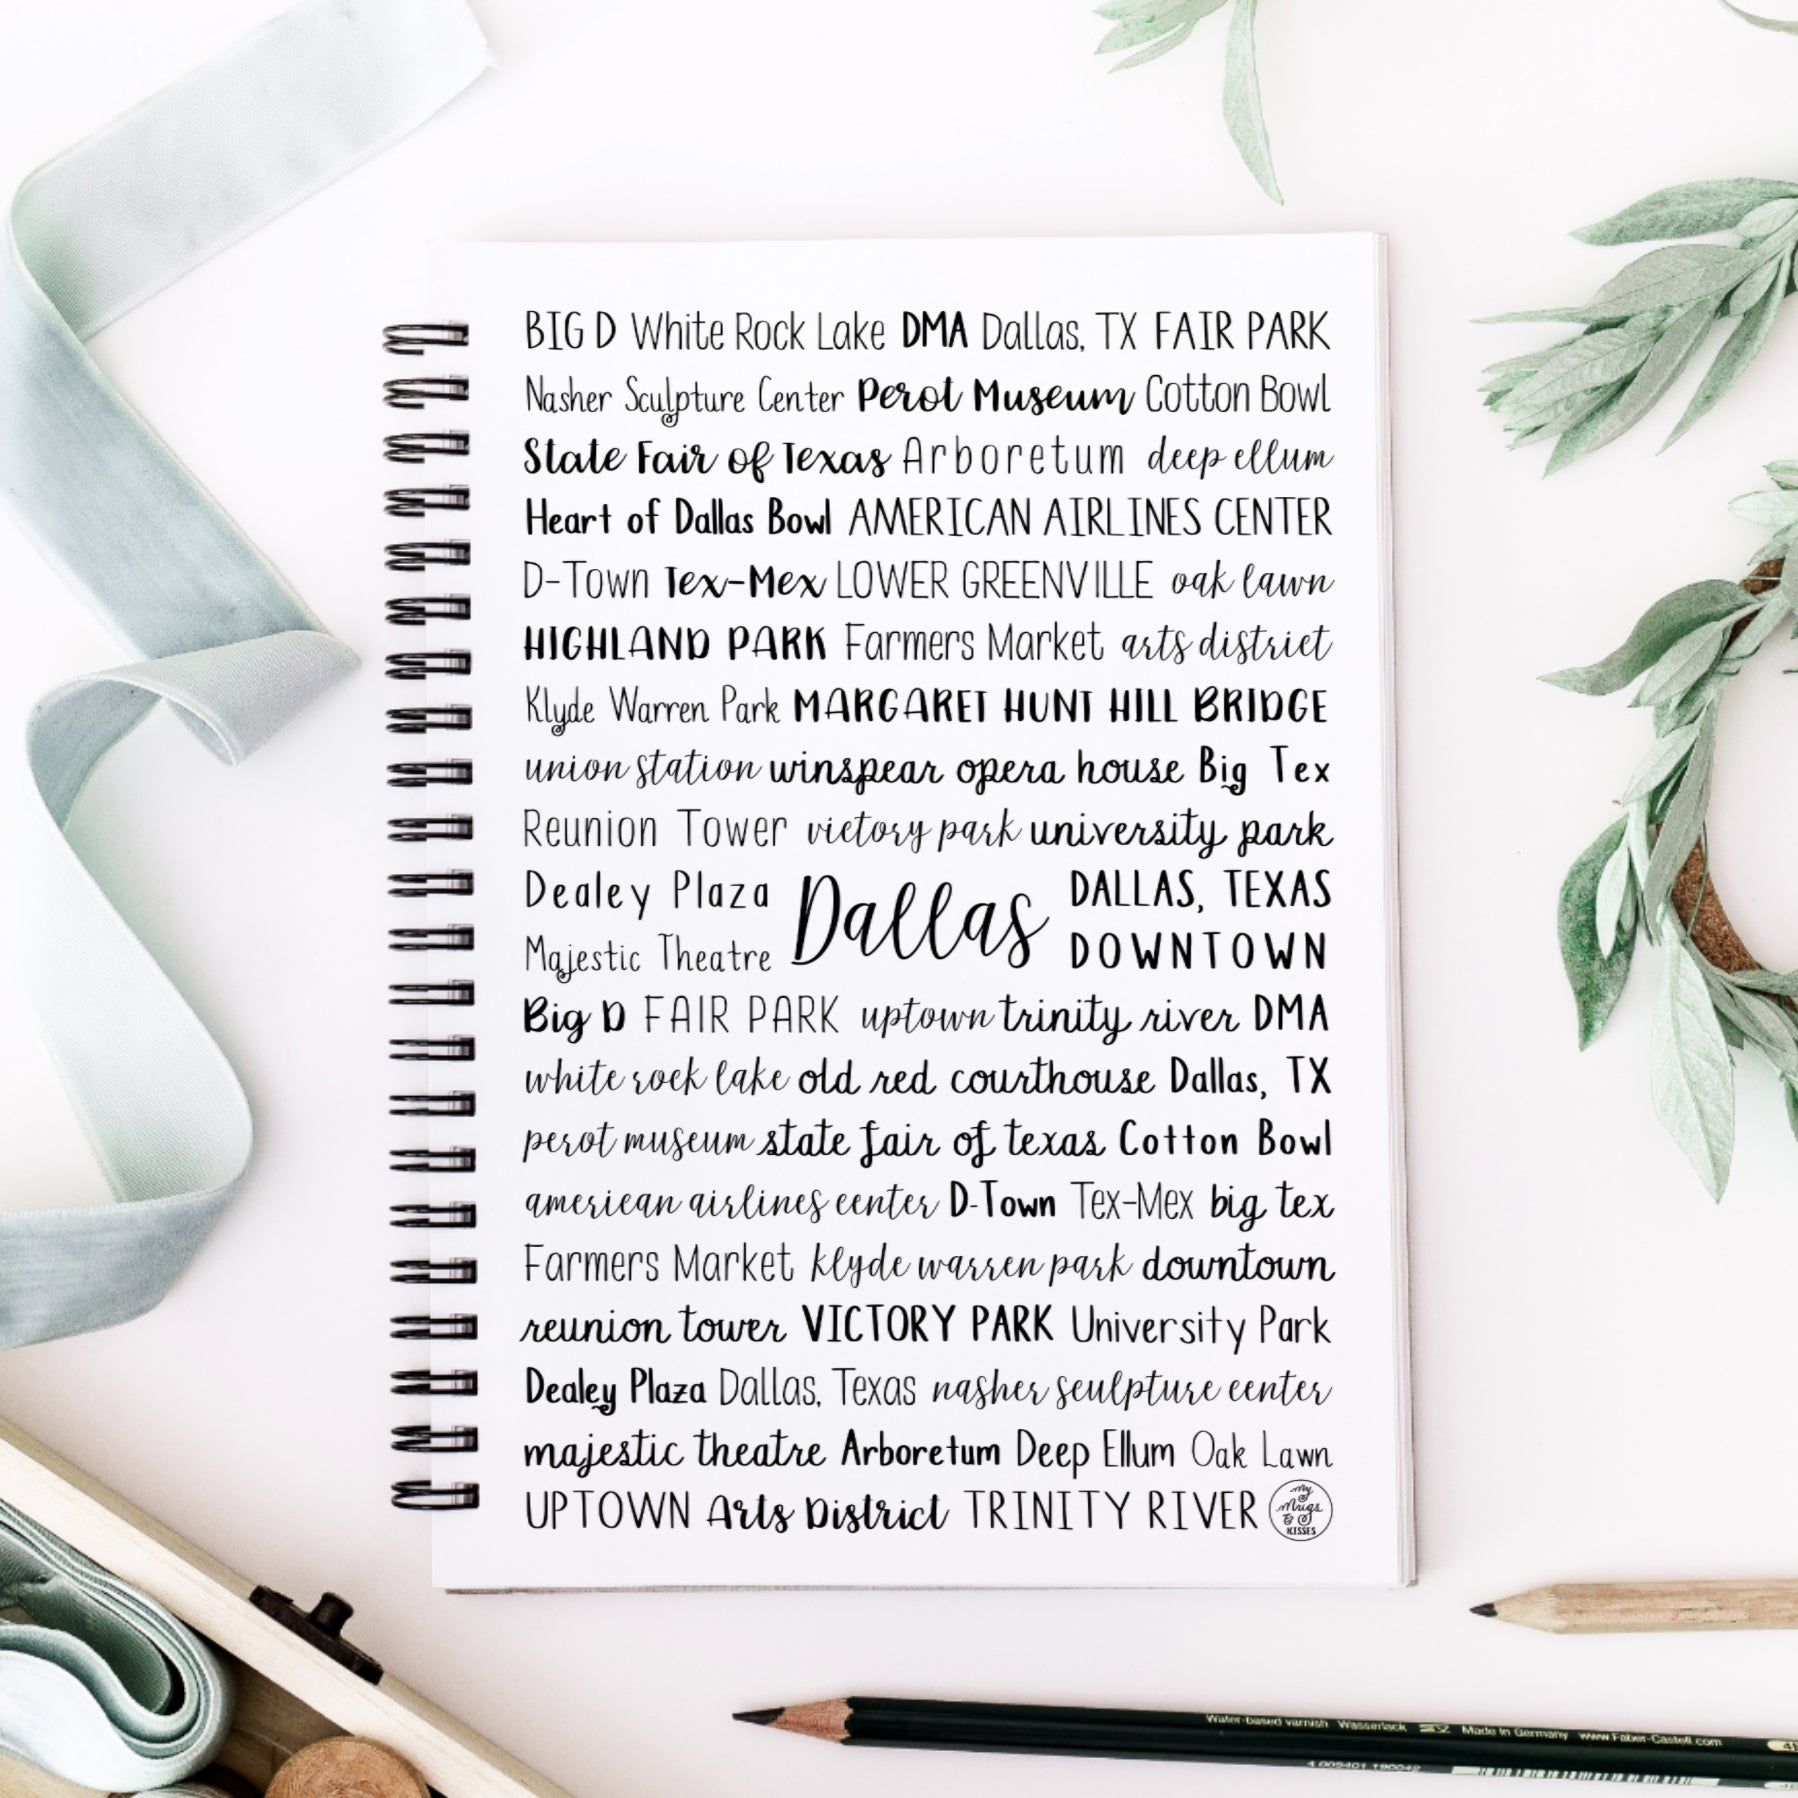 BIG D White Rock Lake DMA Dallas, TX FAIR PARK
Nasher Sculpture Center Perot Museum Cotton Bowl
State Fair of Texas Arboretum deep ellum
Heart of Dallas Bowl AMERICAN AIRLINES CENTER
D-Town Tex-Mex LOWER GREENVILLE oak lawn
HIGHLAND PARK Farmers Market arts district
Klyde Warren Park MARGARET HUNT HILL BRIDGE
union station winspear opera house Big Tex
Reunion Tower victory park university park
Dealey Plaza
Majestic Theatre
Dallas
DALLAS, TEXAS
DOWNTOWN
Big D FAIR PARK uptown trinity river DMA
white rock lake old red courthouse Dallas, TX
perot museum state fair of texas Cotton Bowl
american airlines center D-Town Tex-Mex big tex
Farmers Market klyde warren park downtown
reunion tower VICTORY PARK University Park
Dealey Plaza Dallas, Texas nasher sculpture center
majestic theatre Arboretum Deep Ellum Oak Lawn
UPTOWN Arts District TRINITY RIVER
my
Mugs
&
KISSES
Water-based varnish Wasserlack Made in Germany www.Faber-Castell.com
4 005401 190042